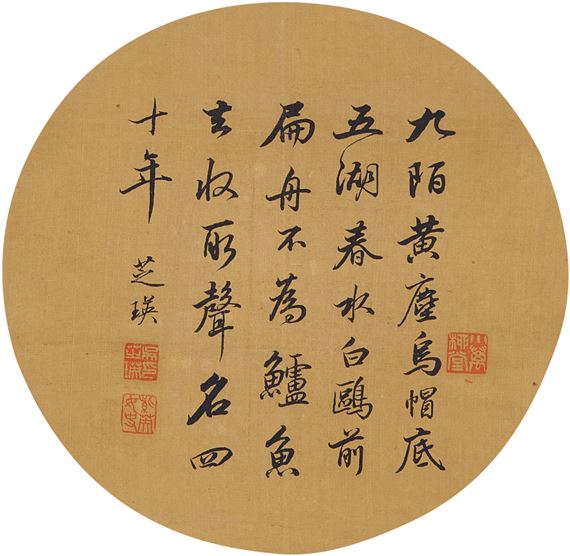 小萬柳堂
九陌黄塵烏帽底
五湖春水白鷗前
扁舟不為鱸魚
去收取聲名四
十年
芝瑛